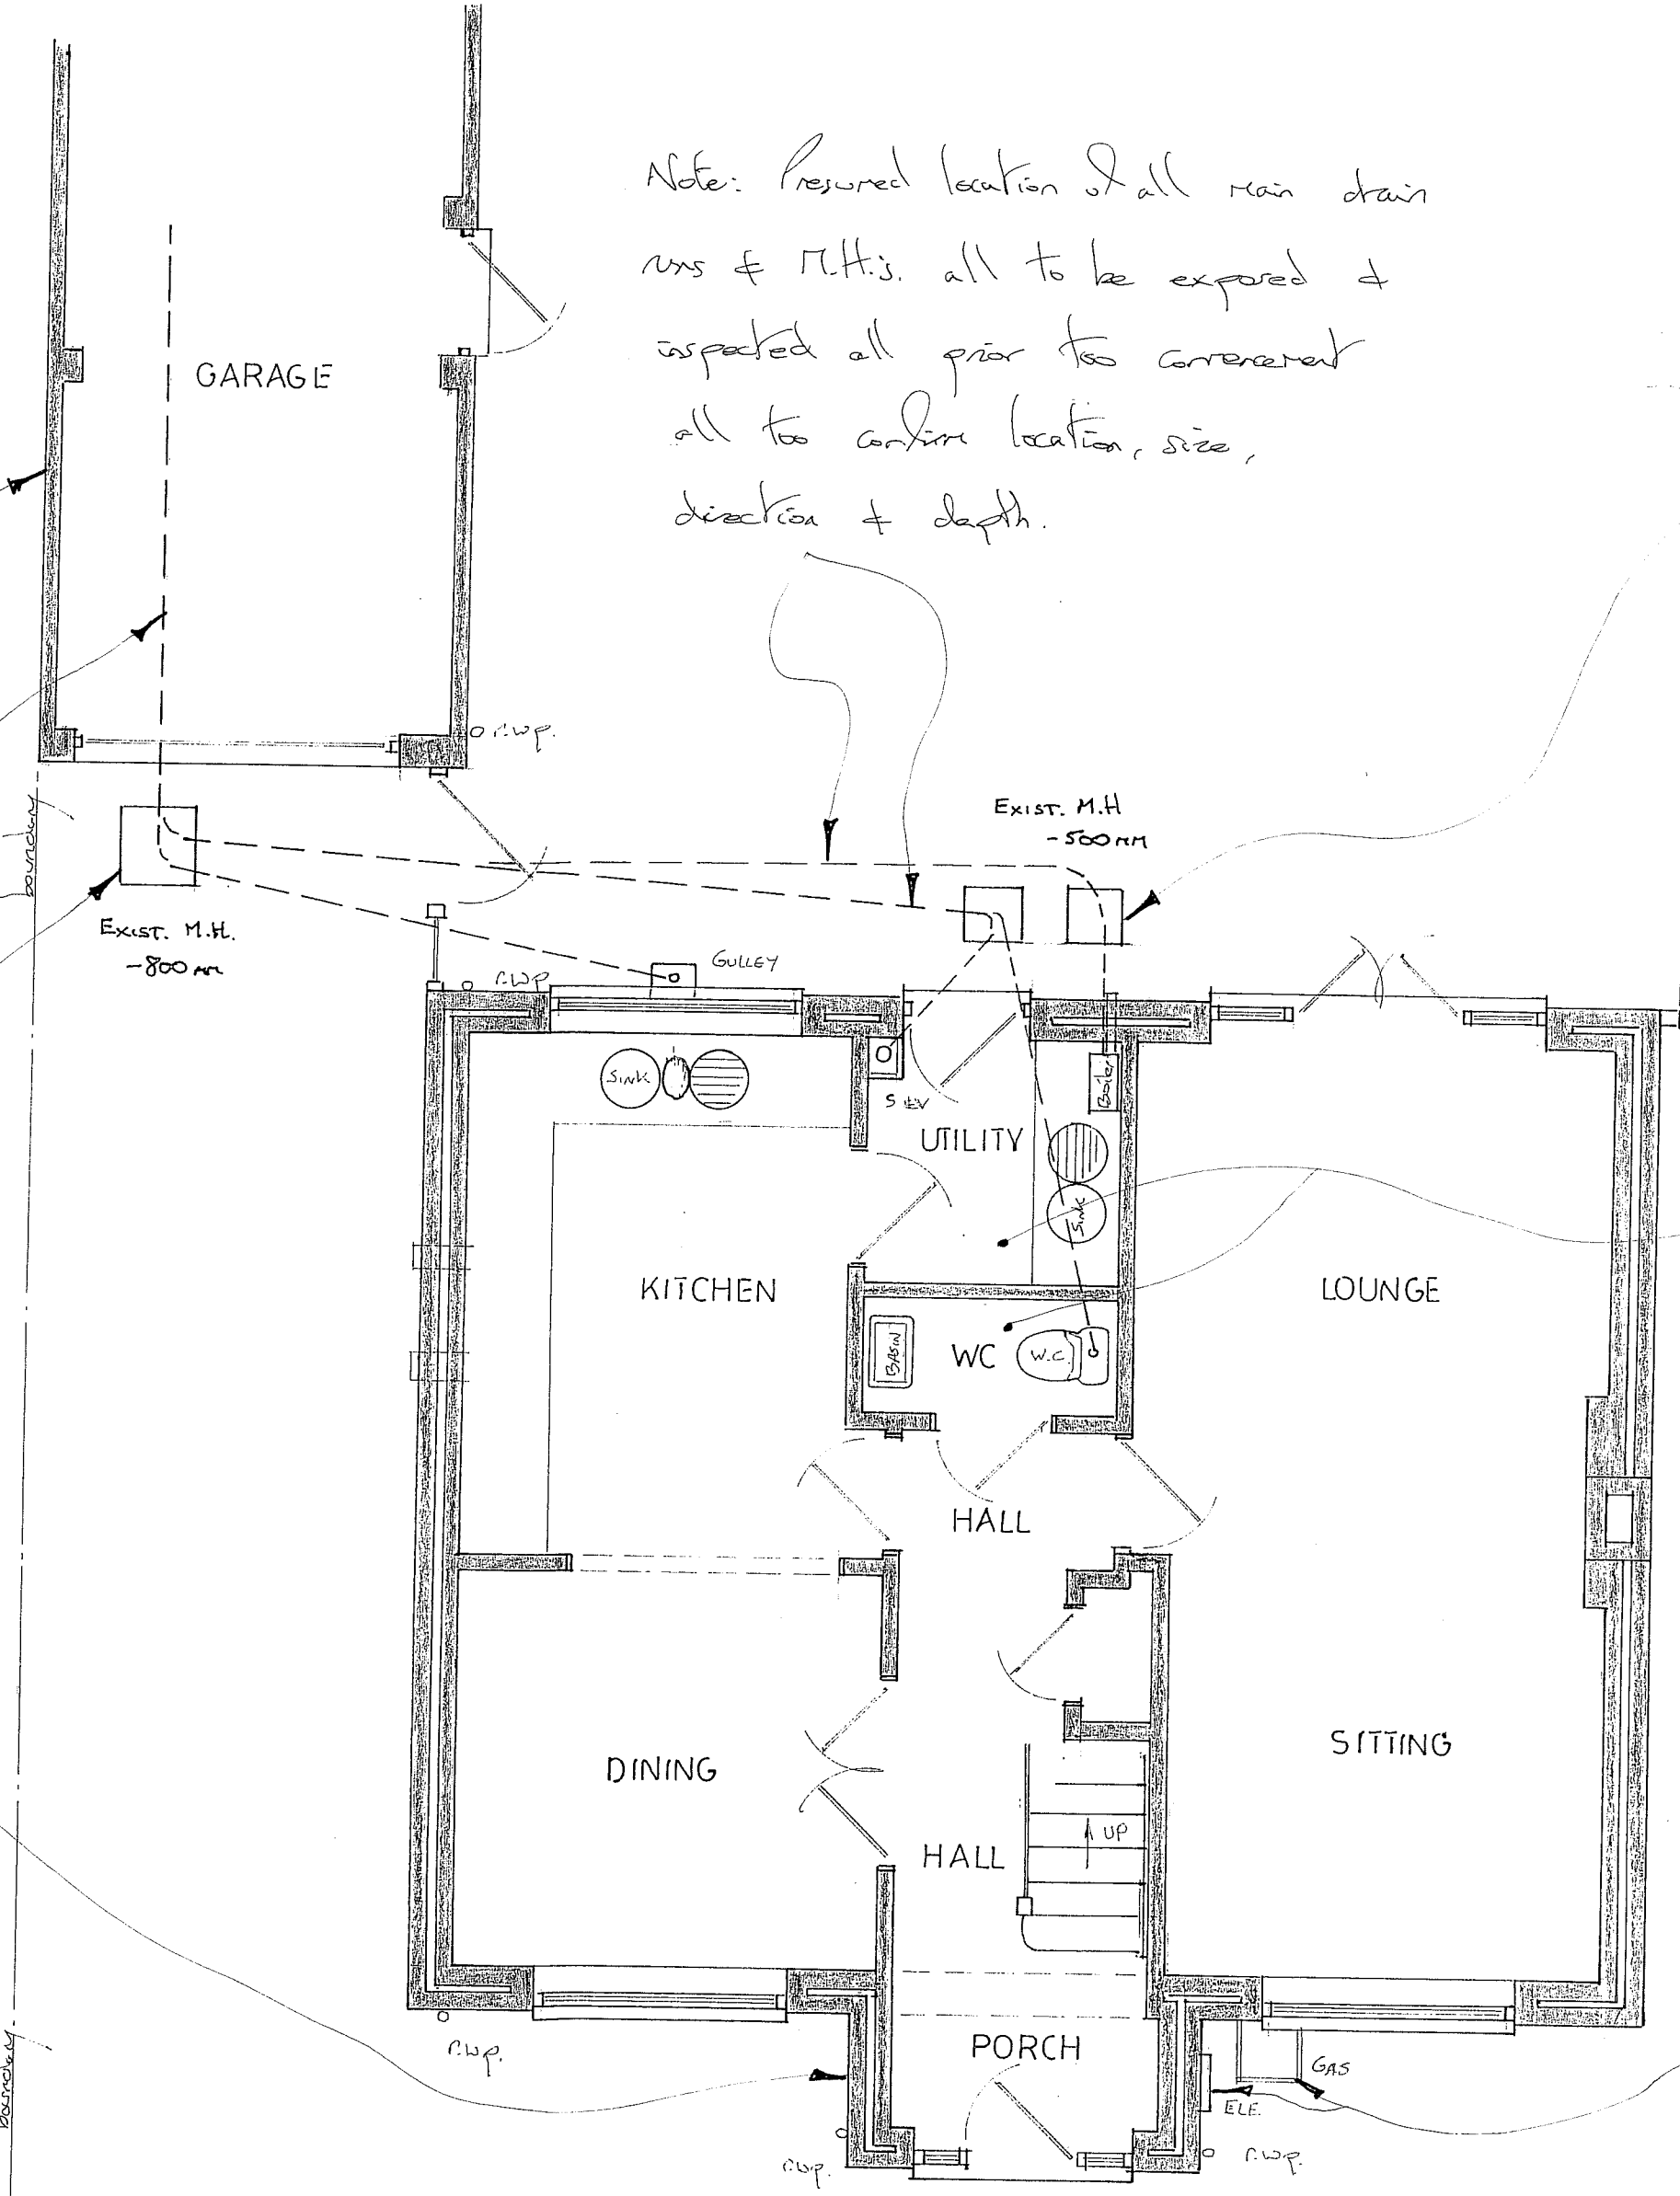 Note: Presumed location of all main drain
runs & M.H.'s. all to be exposed &
inspected all prior too commencement
all too confirm location, size,
direction & depth.
GARAGE
r.w.p.
boundary
EXIST. M.H
-500mm
EXIST. M.H.
-800mm
r.w.p
GULLEY
SINK
Boiler
UTILITY
SINK
KITCHEN
LOUNGE
BASIN
WC
W.C.
HALL
DINING
SITTING
UP
HALL
PORCH
r.w.p.
GAS
ELE.
boundary
r.w.p.
r.w.p.